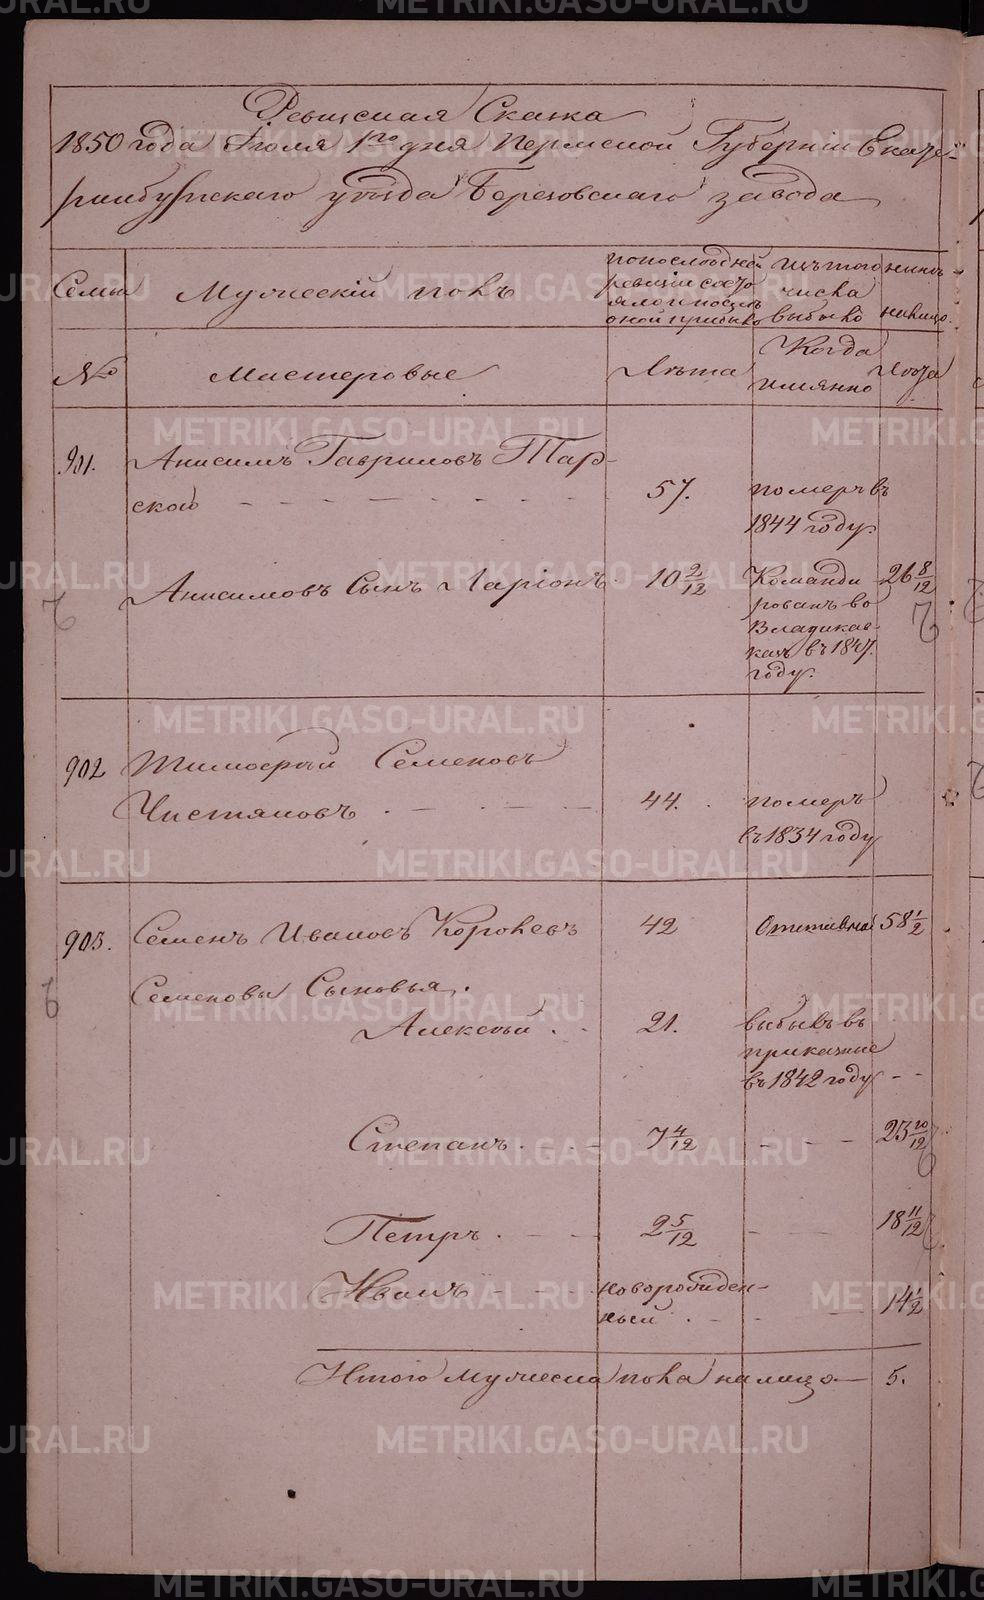 Ревизская Сказка
1850 года Июля 1го дня Пермской Губернии Екате-
ринбургскаго уѣзда Березовскаго завода
Семьи
Мужескій полъ
по последней
ревизіи состо
яло и послѣ
оной прибыло
изъ того
числа
выбыло
нынѣ
налицо.
№
Мастеровые
Лѣта
Когда
имянно
Лѣта
901.
Анисимъ Гавриловъ Тар-
ской
57.
померъ въ
1844 году.
Анисимовъ Сынъ Ларіонъ
10 2/12
Команди
рованъ во
Владикав-
казъ въ 1847.
году.
26 8/12
902
Тимофѣй Семеновъ
Чистяковъ
44.
померъ
въ 1834 году
903.
Семенъ Ивановъ Королевъ
42
Отставной
58 1/2
Семеновы Сыновья.
Алексѣй
21.
выбылъ въ
приказные
въ 1842 году
Степанъ
7 4/12
23 10/12
Петръ
2 5/12
18 11/12
Иванъ
новорожден-
ный
14 1/2
Итого мужеска пола на лицо
5.
METRIKI.GASO-URAL.RU